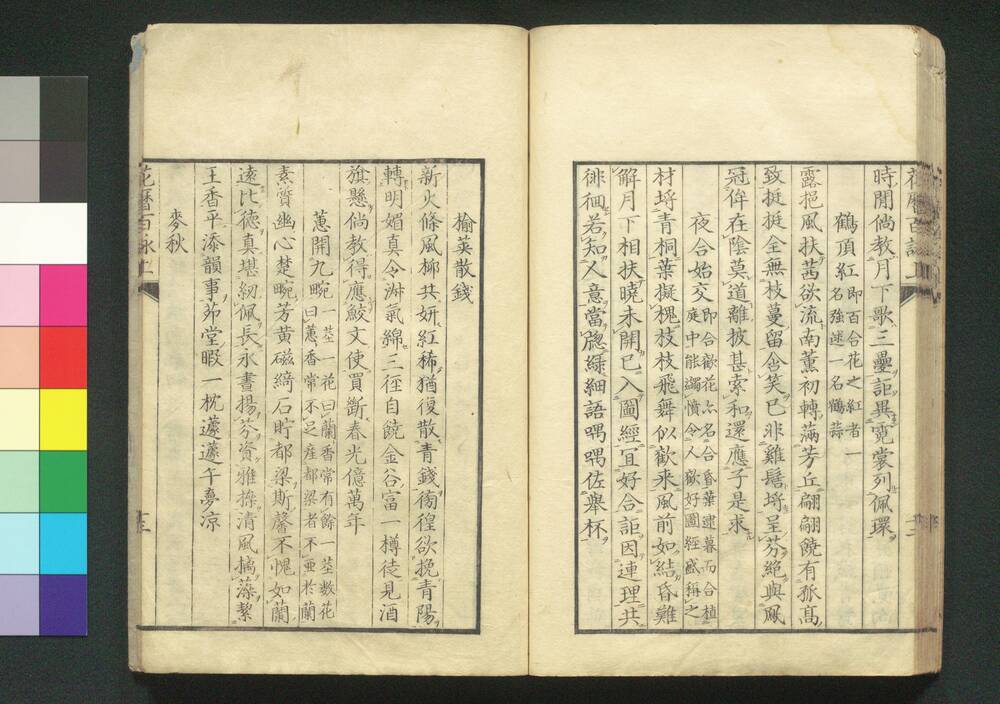 時閒倘教月下歌三疊詎異霓裳列佩環
鶴頂紅即百合花之紅者一名強述一名鶴蒜
露挹風扶茜欲流南薰初轉滿芳丘翩翩饒有孤高
致挺挺全無枝蔓留含笑已非雞鬙埒呈芬絶與鳳
冠侔在陰莫道離披甚索和還應子是求
夜合始交即合歡花亦名合昏葉逮暮而合植庭中能蠲憤令人歡好圖經盛稱之
材埒青桐葉擬槐枝枝飛舞似歡來風前如結昏難
解月下相扶曉未開已入圖經宜好合詎因連理共
徘徊若知人意當窻綠細語喁喁佐舉杯
花曆百詠上
榆莢散錢
新火條風柳共妍紅稀猶復散青錢徬徨欲挽青陽
轉明媚真令淑氣綿三徑自饒金谷富一樽徒見酒
旗懸倘教得應鮫文使買斷春光億萬年
蕙開九畹一莖一花曰蘭香常有餘一莖數花曰蕙香常不足產都梁者不亞於蘭
素質幽心楚畹芳黃磁綺石貯都梁斯馨不愧如蘭
遠比德真堪紉佩長永晝揚芬資雅操清風摛藻絜
王香平添韻事茆堂暇一枕蘧蘧午夢凉
麥秋
花曆百詠上